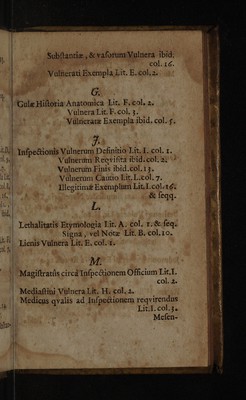 Substantiæ, & vasorum Vulnera ibid.
col. 16.
Vulnerati Exempla Lit. E. col. 2.
G.
Gulæ Historia Anatomica Lit. F. col. 2.
Vulnera Lit. F. col. 3.
Vulneratæ Exempla ibid. col. 5.
J.
Inspectionis Vulnerum Definitio Lit. I. col. 1.
Vulnerum Reqvisita ibid. col. 2.
Vulnerum Finis ibid. col. 13.
Vulnerum Cautio Lit. I. col. 7.
Illegitimæ Exemplum Lit. I. col. 16.
& seqq.
L.
Lethalitatis Etymologia Lit. A. col. 1. & seq.
Signa, vel Notæ Lit. B. col. 10.
Lienis Vulnera Lit. E. col. 1.
M.
Magistratûs circa Inspectionem Officium Lit. I.
col. 2.
Mediastini Vulnera Lit. H. col. 2.
Medicus qvalis ad Inspectionem reqvirendus
Lit. I. col. 3.
Mesen-